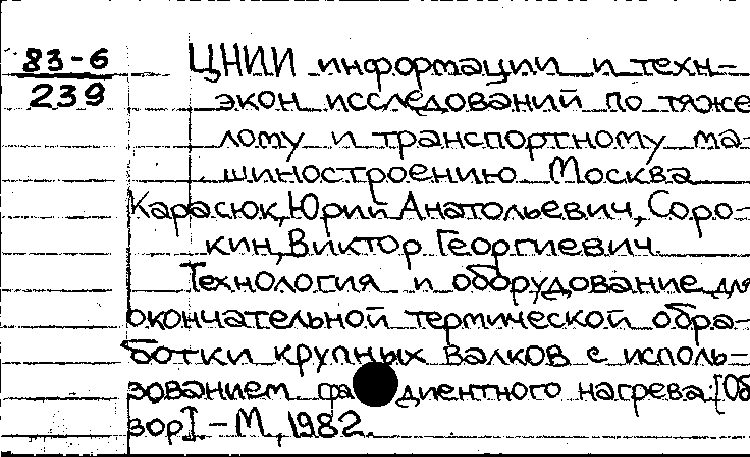 83-6
239
ЦНИИ информации и техн-
экон исследований по тяже
лому и транспортному ма-
шиностроению Москва
Карасюк, Юрий Анатольевич, Соро-
кин, Виктор Георгиевич.
Технология и оборудование для
окончательной термической обра-
ботки крупных валков с исполь-
зованием нагрева.[Об
зор]. - М, 1982.